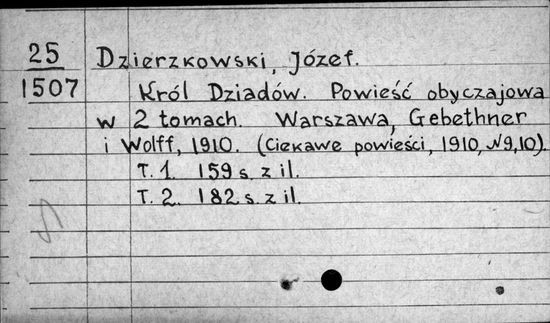 25
1507
Dzierzkowski, Józef.
Król Dziadów. Powieść obyczajowa
w 2 tomach. Warszawa, Gebethner
i Wolff, 1910. (Ciekawe powieści, 1910, N9,10).
T. 1. 159 s. z il.
T. 2. 182 s. z il.